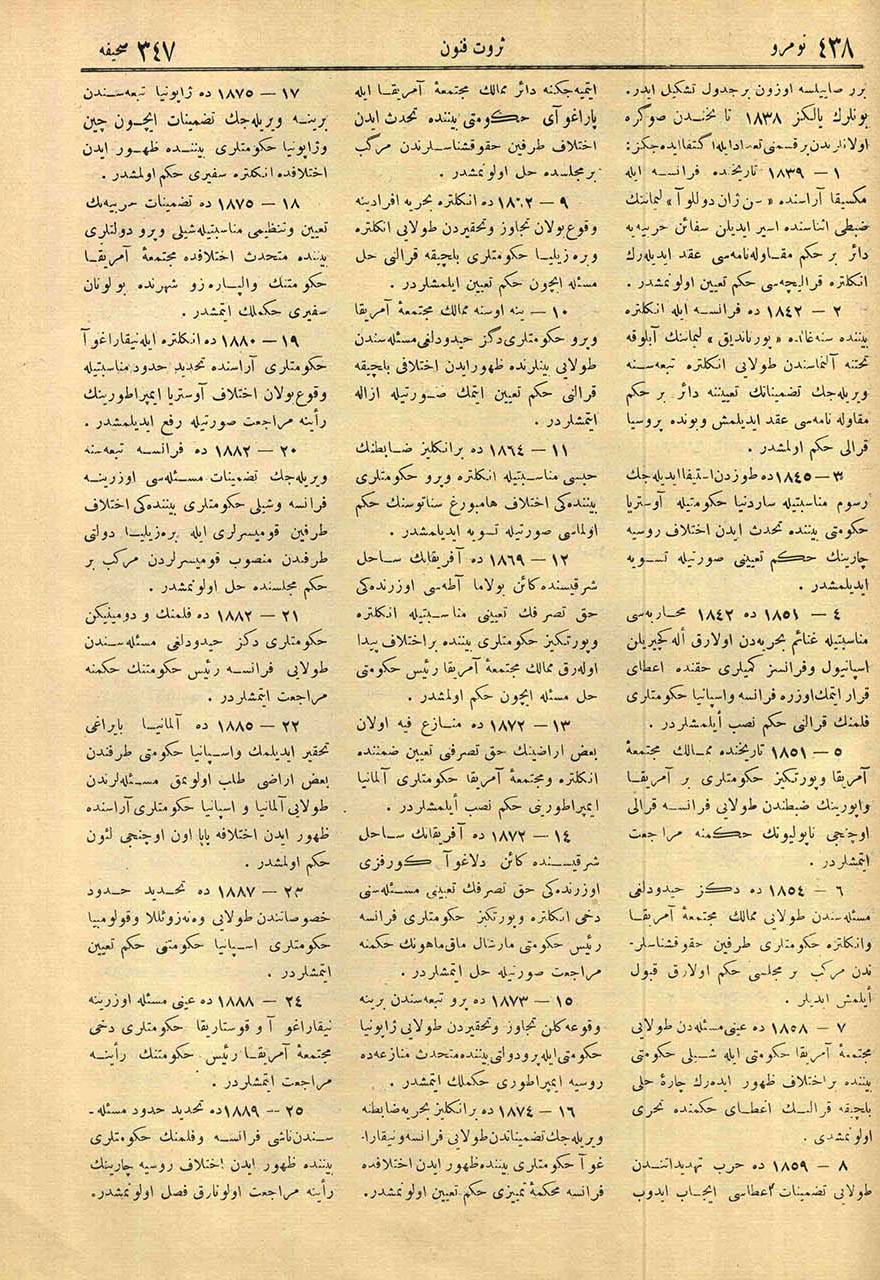 نومرو ٤٣٨
ثروت فنون
صحيفه ٣٤٧
برر صاييلسه اوزون بر جدول تشكيل ايدر.
بونلرك يالكز ١٨٣٨ تاريخندن صوكره
اولانلرندن بر قسمنى تعداد ايله اكتفا ايده جكز:
١ – ١٨٣٩ تاريخنده فرانسه ايله
مكسيقا آراسنده «سن ژان دوللوآ» ليماننك
ضبطى اثناسنده اسير ايديلن سفائن حربيه يه
دائر بر حكم مقاوله نامه سى عقد ايديله رك
انكلتره قراليچه سى حكم تعيين اولونمشدر .
٢ – ١٨٤٢ ده فرانسه ايله انكلتره
بيننده سنه غالده «پورتانديق» ليماننك آبلوقه
تحتنه آلنماسندن طولايى انكلتره تبعه سنه
ويريله جك تضميناتك تعييننه دائر بر حكم
مقاوله نامه سى عقد ايديلمش وبونده پروسيا
قرالى حكم اولمشدر .
٣ – ١٨٤٥ ده طوزدن استيفا ايديله جك
رسوم مناسبتيله ساردنيا حكومتيله آوستريا
حكومتى بيننده تحدث ايدن اختلاف روسيه
چارينك حكم تعيينى صورتيله تسويه
ايديلمشدر .
٤ – ١٨٥١ ده ١٨٤٢ محاربه سى
مناسبتيله غنائم بحريه دن اولارق أله كچيريلن
اسپانيول وفرانسز كميلرى حقنده اعطاى
قرار ايتمك اوزره فرانسه واسپانيا حكومتلرى
فلمنك قرالنى حكم نصب أيلمشلردر .
٥ – ١٨٥١ تاريخنده ممالك مجتمعۀ
آمريقا وپورتكيز حكومتلرى بر آمريقا
واپورينك ضبطندن طولايى فرانسه قرالى
اوچنجى ناپوليونك حكمنه مراجعت
ايتمشلردر .
٦ – ١٨٥٤ ده دكز حيدودلغى
مسئله سندن طولايى ممالك مجتمعۀ آمريقا
وانكلتره حكومتلرى طرفين حقوقشناسلر-
ندن مركب بر مجلسى حكم اولارق قبول
أيلمش ايديلر .
٧ – ١٨٥٨ ده عينى مسئله دن طولايى
مجتمعۀ آمريقا حكومتى ايله شيلى حكومتى
بيننده بر اختلاف ظهور ايده رك چارۀ حلى
بلچيقه قرالنك اعطاى حكمنده تحرى
اولونمشدى .
٨ – ١٨٥٩ ده حرب تهديداتندن
طولايى تضمينات اعطاسى ايجاب ايدوب
ايتميه جكنه دائر ممالك مجتمعۀ آمريقا ايله
پاراغوآى حكومتى بيننده تحدث ايدن
اختلاف طرفين حقوقشناسلرندن مركب
بر مجلسده حل اولونمشدر .
٩ – ١٨٦٢ ده انكلتره بحريه افرادينه
وقوع بولان تجاوز وتحقيردن طولايى انكلتره
وبره زيليا حكومتلرى بلچيقه قرالنى حل
مسئله ايچون حكم تعيين ايلمشلردر .
١٠ – ينه اوسنه ممالك مجتمعۀ آمريقا
وپرو حكومتلرى دكز حيدودلغى مسئله سندن
طولايى بينلرنده ظهور ايدن اختلافى بلچيقه
قرالنى حكم تعيين ايتمك صورتيله ازاله
ايتمشلردر .
١١ – ١٨٦٤ ده بر انكليز ضابطنك
حبسى مناسبتيله انكلتره وپرو حكومتلرى
بيننده كى اختلاف هامبورغ سناتوسنك حكم
اولماسى صورتيله تسويه ايديلمشدر .
١٢ – ١٨٦٩ ده آفريقانك ساحل
شرقيسنده كائن بولاما آطه سى اوزرنده كى
حق تصرفك تعيينى مناسبتيله انكلتره
وپورتكيز حكومتلرى بيننده بر اختلاف پيدا
اوله رق ممالك مجتمعۀ آمريقا رئيس حكومتى
حل مسئله ايچون حكم اولمشدر .
١٣ – ١٨٧٢ ده منازع فيه اولان
بعض اراضينك حق تصرفنى تعيين ضمننده
انكلتره ومجتمعۀ آمريقا حكومتلرى آلمانيا
ايمپراطورينى حكم نصب أيلمشلردر .
١٤ – ١٨٧٢ ده آفريقانك ساحل
شرقيسنده كائن دلاغوآ كورفزى
اوزرنده كى حق تصرفك تعيينى مسئله سنى
دخى انكلتره وپورتكيز حكومتلرى فرانسه
رئيس حكومتى مارشال ماق ماهونك حكمنه
مراجعت صورتيله حل ايتمشلردر .
١٥ – ١٨٧٣ ده پرو تبعه سندن برينه
وقوعه كلن تجاوز وتحقيردن طولايى ژاپونيا
حكومتى ايله پرو دولتى بيننده متحدث منازعه ده
روسيه ايمپراطورى حكملك ايتمشدر .
١٦ – ١٨٧٤ ده بر انكليز بحريه ضابطنه
ويريله جك تضميناتدن طولايى فرانسه ونيقارا-
غوآ حكومتلرى بيننده ظهور ايدن اختلافده
فرانسه محكمۀ تمييزى حكم تعيين اولونمشدر.
١٧ – ١٨٧٥ ده ژاپونيا تبعه سندن
برينه ويريله جك تضمينات ايچون چين
وژاپونيا حكومتلرى بيننده ظهور ايدن
اختلافده انكلتره سفيرى حكم اولمشدر.
١٨ – ١٨٧٥ ده تضمينات حربيه نك
تعيين وتنظيمى مناسبتيله شيلى وپرو دولتلرى
بيننده متحدث اختلافده مجتمعۀ آمريقا
حكومتنك والپاره زو شهرنده بولونان
سفيرى حكملك ايتمشدر .
١٩ – ١٨٨٠ ده انكلتره ايله نيقاراغوآ
حكومتلرى آراسنده تحديد حدود مناسبتيله
وقوع بولان اختلاف آوستريا ايمپراطورينك
رأينه مراجعت صورتيله رفع ايديلمشدر .
٢٠ – ١٨٨٢ ده فرانسه تبعه سنه
ويريله جك تضمينات مسئله سى اوزرينه
فرانسه وشيلى حكومتلرى بيننده كى اختلاف
طرفين قوميسرلرى ايله بره زيليا دولتى
طرفندن منصوب قوميسرلردن مركب بر
حكم مجلسنده حل اولونمشدر.
٢١ – ١٨٨٢ ده فلمنك و دومينيكن
حكومتلرى دكز حيدودلغى مسئله سندن
طولايى فرانسه رئيس حكومتنك حكمنه
مراجعت ايتمشلردر .
٢٢ – ١٨٨٥ ده آلمانيا بايراغى
تحقير ايديلمك واسپانيا حكومتى طرفندن
بعض اراضى طلب اولونمق مسئله لرندن
طولايى آلمانيا و اسپانيا حكومتلرى آراسنده
ظهور ايدن اختلافه پاپا اون اوچنجى لئون
حكم اولمشدر .
٢٣ – ١٨٨٧ ده تحديد حدود
خصوصاتندن طولايى وه نه زوئللا وقولومبيا
حكومتلرى اسپانيا حكومتنى حكم تعيين
ايتمشلردر .
٢٤ – ١٨٨٨ ده عينى مسئله اوزرينه
نيقاراغوآ و قوستاريقا حكومتلرى دخى
مجتمعۀ آمريقا رئيس حكومتنك رأينه
مراجعت ايتمشلردر .
٢٥ – ١٨٨٩ ده تحديد حدود مسئله-
سندن ناشى فرانسه وفلمنك حكومتلرى
بيننده ظهور ايدن اختلاف روسيه چارينك
رأينه مراجعت اولونارق فصل اولونمشدر.